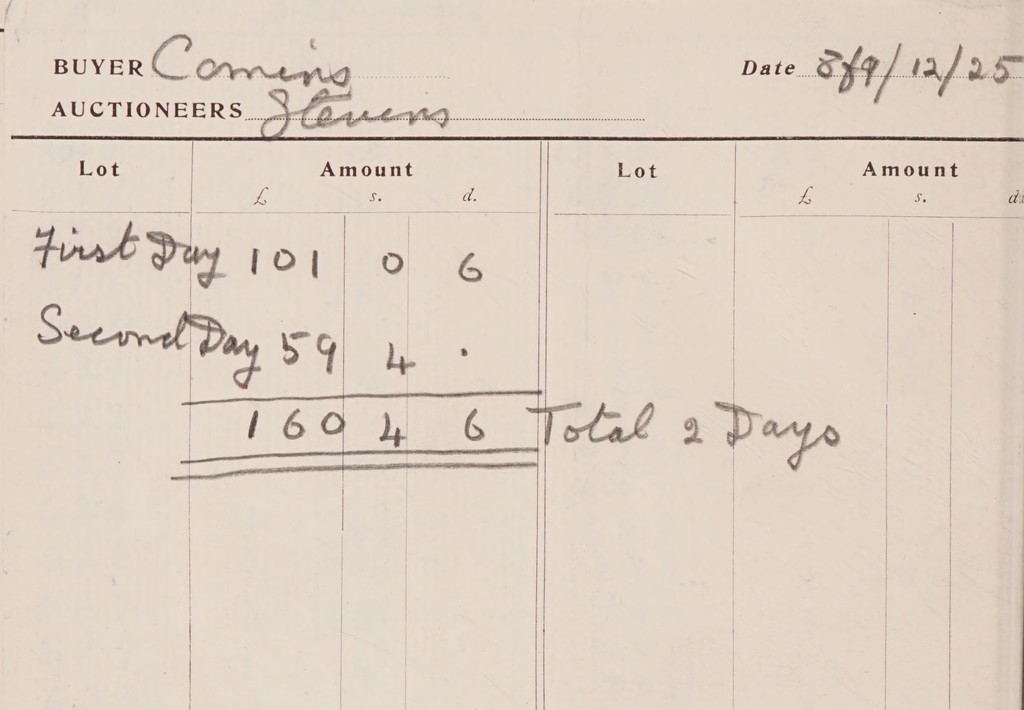 BUYER Comins Date 8/9/12/25
AUCTIONEERS Stevens
Lot Amount Lot Amount
£ s. d. £ s. d.
First Day 101 0 6
Second Day 59 4 .
160 4 6 Total 2 Days